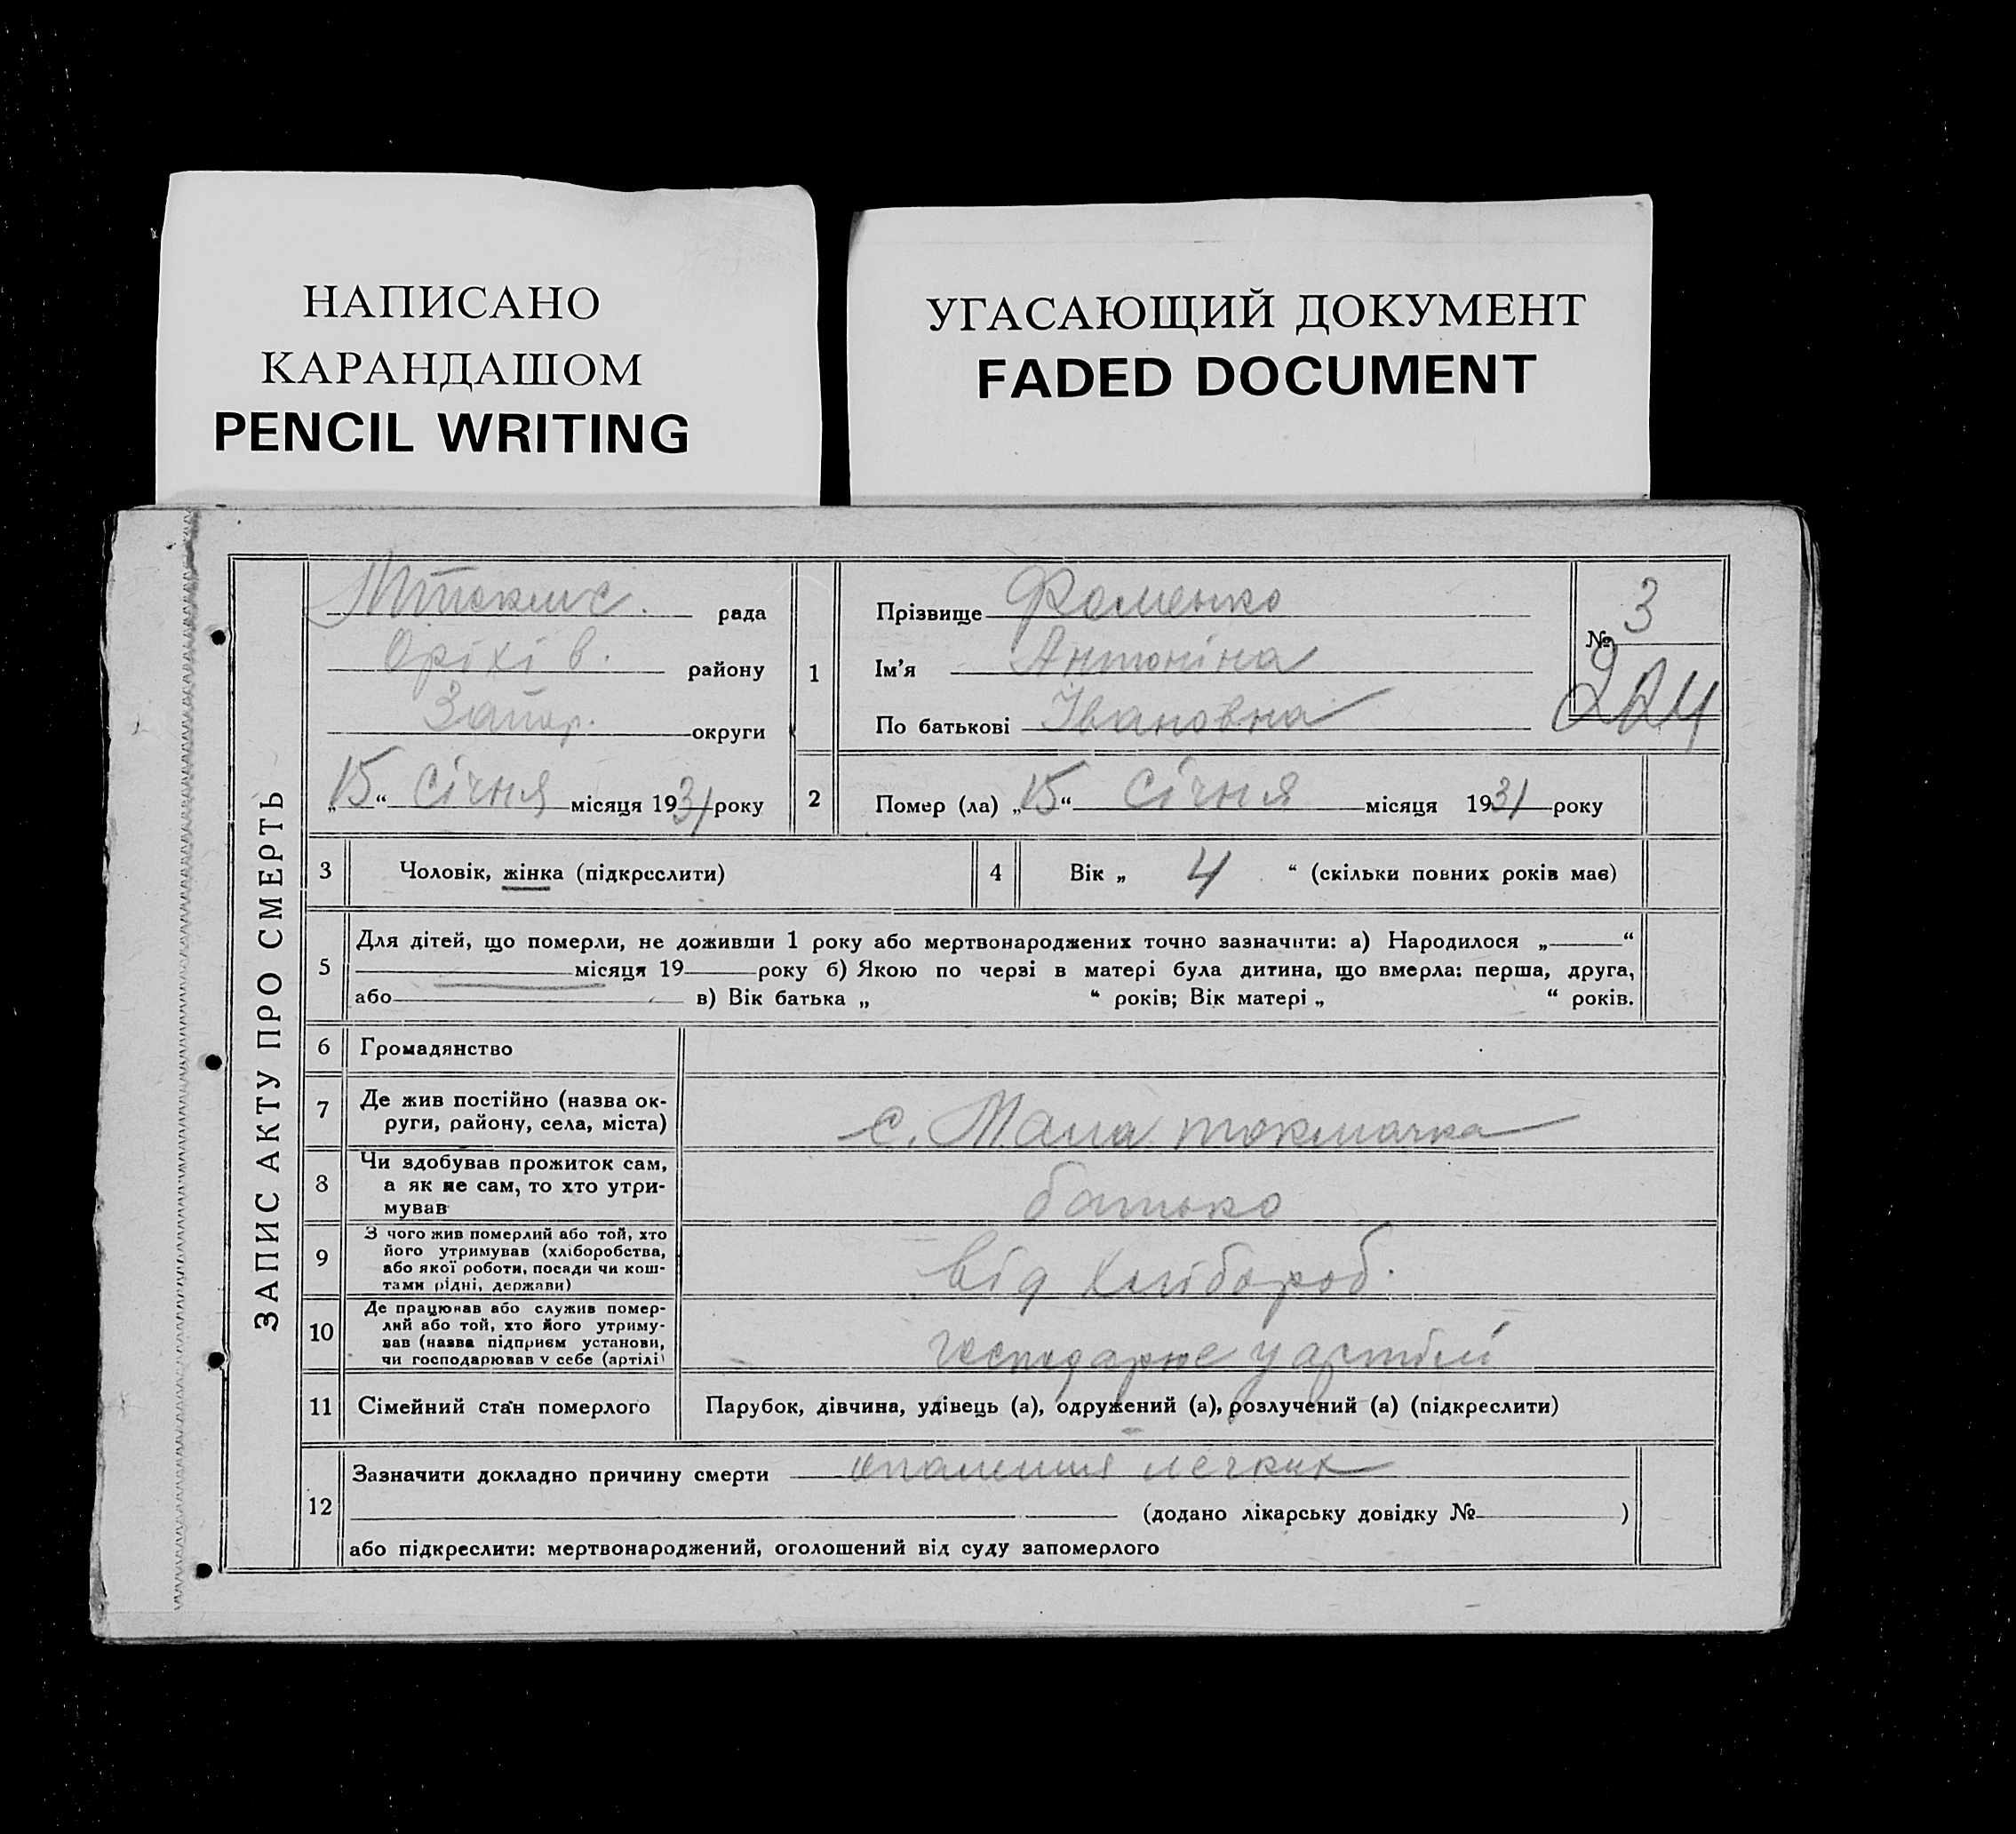 НАПИСАНО
КАРАНДАШОМ
PENCIL WRITING
УГАСАЮЩИЙ ДОКУМЕНТ
FADED DOCUMENT
ЗАПИС АКТУ ПРО СМЕРТЬ
рада
Оріхів. району
Запор. округи
„15“ Січня місяця 1931 року
1
Прізвище Фоменко
Ім'я Антоніна
По батькові Івановна
№ 3
224
2 Помер (ла) „15“ Січня місяця 1931 року
3 Чоловік, жінка (підкреслити)
4 Вік „ 4 “ (скільки повних років має)
5 Для дітей, що померли, не доживши 1 року або мертвонароджених точно зазначити: а) Народилося „ “
місяця 19 року б) Якою по черзі в матері була дитина, що вмерла: перша, друга,
або в) Вік батька „ “ років; Вік матері „ “ років.
6 Громадянство
7 Де жив постійно (назва ок-
руги, району, села, міста)
с. Мала токмачка
8 Чи здобував прожиток сам,
а як не сам, то хто утри-
мував
батько
9 З чого жив померлий або той, хто
його утримував (хліборобства,
або якої роботи, посади чи кош-
тами рідні, держави)
від хлібороб.
10 Де працював або служив помер-
лий або той, хто його утриму-
вав (назва підприєм установи,
чи господарював у себе (артілі)
господарює у артілі
11 Сімейний стан померлого
Парубок, дівчина, удівець (а), одружений (а), розлучений (а) (підкреслити)
12 Зазначити докладно причину смерти опалення легких
(додано лікарську довідку № )
або підкреслити: мертвонароджений, оголошений від суду запомерлого